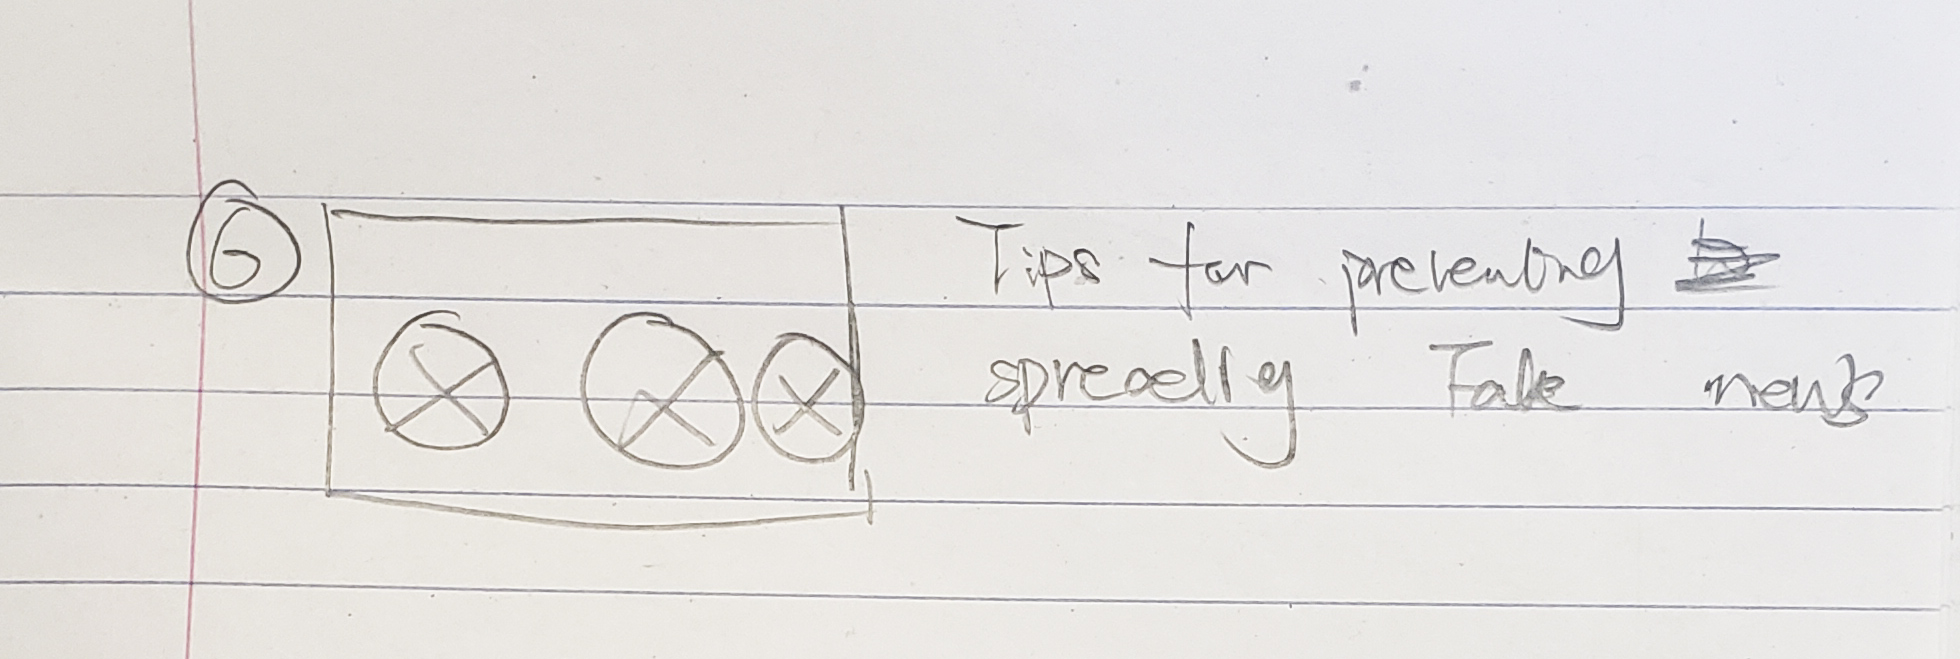 6
Tips for preventing
spreading Fake news